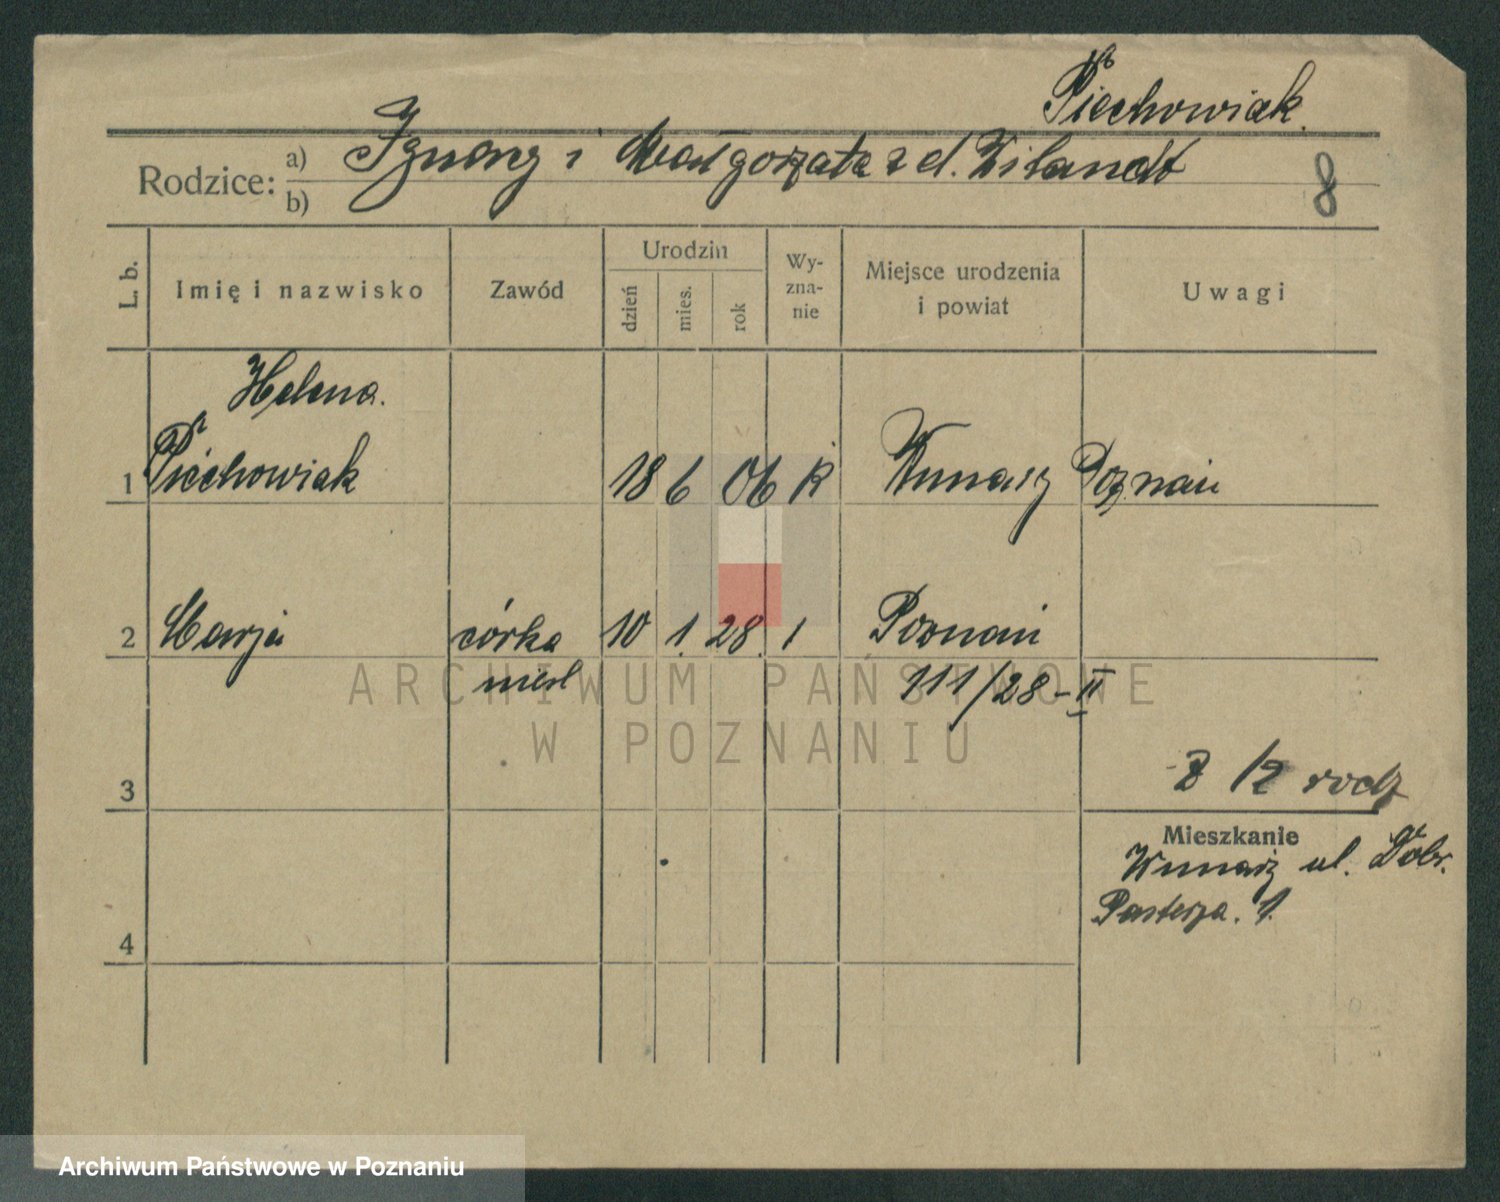 Piechowiak.
Rodzice: a) Ignacy i Małgorzata z d. Wilandt
b)
8
L. b. Imię i nazwisko Zawód Urodzin dzień mies. rok Wy-zna-nie Miejsce urodzenia i powiat Uwagi
Helena.
1 Piechowiak 18 6 06 R Winiary Poznań
2 Marja córka 10 1. 28. 1 Poznań
111/28-II
ARCHIWUM PAŃSTWOWE
W POZNANIU
z 1/2 rodz
3
Mieszkanie
Winiary ul. Dobr.
Pasterza. 1.
4
Archiwum Państwowe w Poznaniu